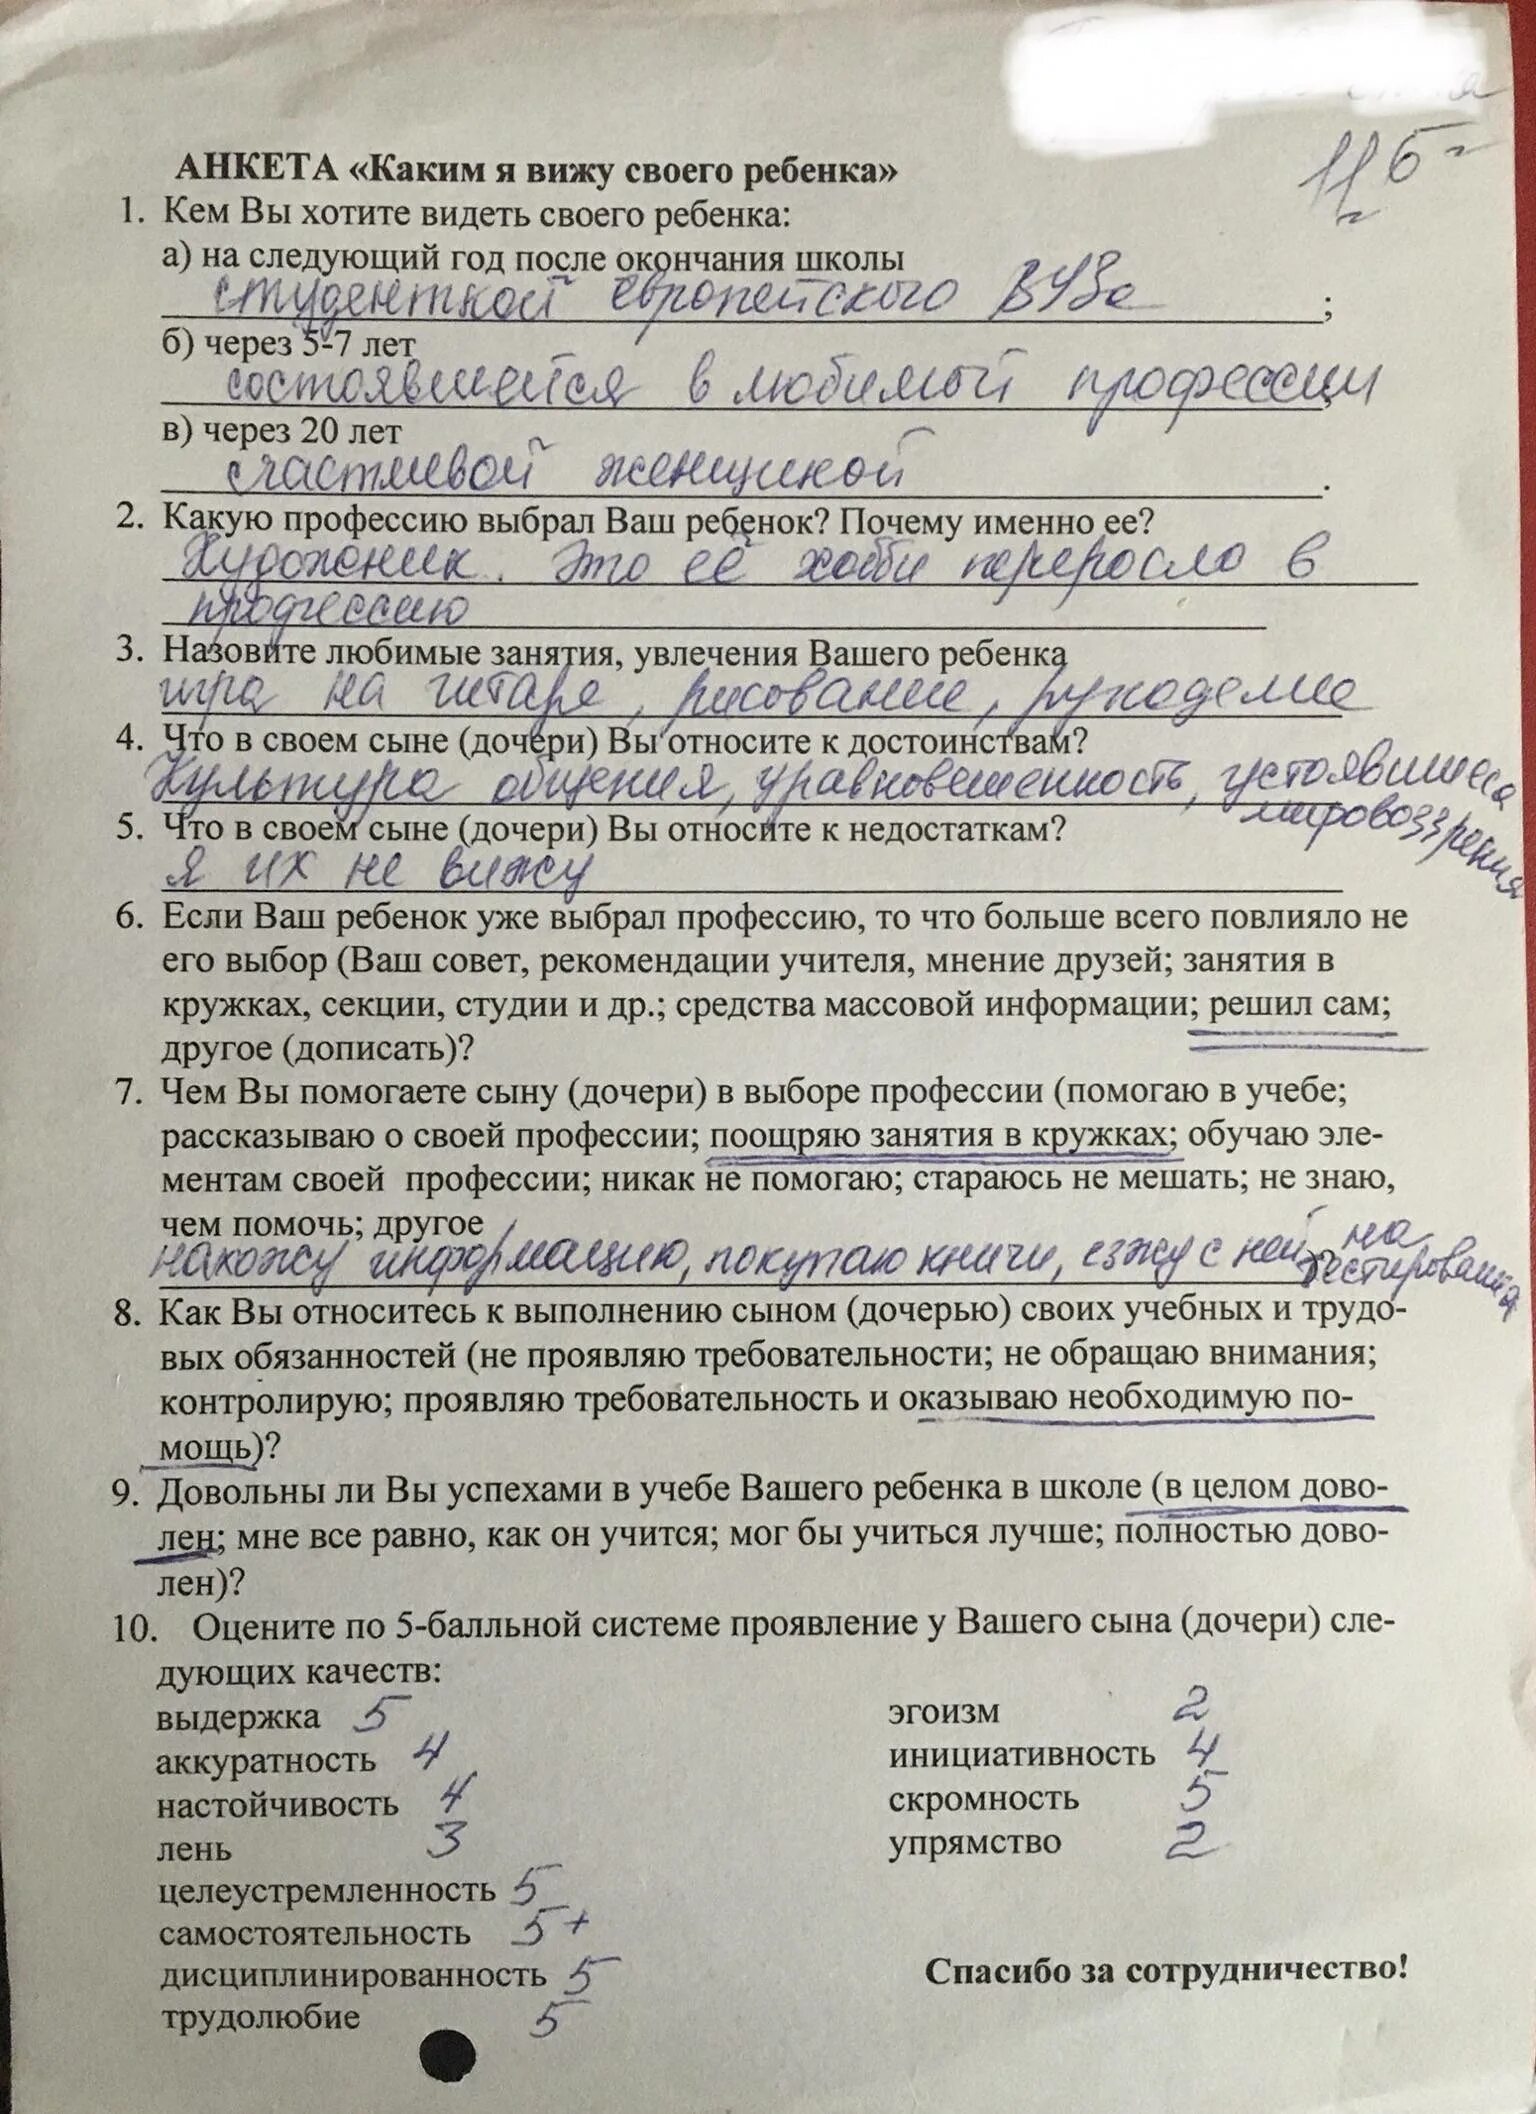 11 б
АНКЕТА «Каким я вижу своего ребенка»
1. Кем Вы хотите видеть своего ребенка:
а) на следующий год после окончания школы
студенткой европейского ВУЗа ;
б) через 5-7 лет
состоявшейся в любимой профессии ;
в) через 20 лет
счастливой женщиной .
2. Какую профессию выбрал Ваш ребенок? Почему именно ее?
Художник. Это её хобби переросло в
профессию
3. Назовите любимые занятия, увлечения Вашего ребенка
игра на гитаре, рисование, рукоделие
4. Что в своем сыне (дочери) Вы относите к достоинствам?
Культура общения, уравновешенность, устоявшиеся
мировоззрения
5. Что в своем сыне (дочери) Вы относите к недостаткам?
я их не вижу
6. Если Ваш ребенок уже выбрал профессию, то что больше всего повлияло не
его выбор (Ваш совет, рекомендации учителя, мнение друзей; занятия в
кружках, секции, студии и др.; средства массовой информации; решил сам;
другое (дописать)?
7. Чем Вы помогаете сыну (дочери) в выборе профессии (помогаю в учебе;
рассказываю о своей профессии; поощряю занятия в кружках; обучаю эле-
ментам своей профессии; никак не помогаю; стараюсь не мешать; не знаю,
чем помочь; другое
нахожу информацию, покупаю книги, езжу с ней на
тестирования
8. Как Вы относитесь к выполнению сыном (дочерью) своих учебных и трудо-
вых обязанностей (не проявляю требовательности; не обращаю внимания;
контролирую; проявляю требовательность и оказываю необходимую по-
мощь)?
9. Довольны ли Вы успехами в учебе Вашего ребенка в школе (в целом дово-
лен; мне все равно, как он учится; мог бы учиться лучше; полностью дово-
лен)?
10. Оцените по 5-балльной системе проявление у Вашего сына (дочери) сле-
дующих качеств:
выдержка 5 эгоизм 2
аккуратность 4 инициативность 4
настойчивость 4 скромность 5
лень 3 упрямство 2
целеустремленность 5
самостоятельность 5+
дисциплинированность 5 Спасибо за сотрудничество!
трудолюбие 5